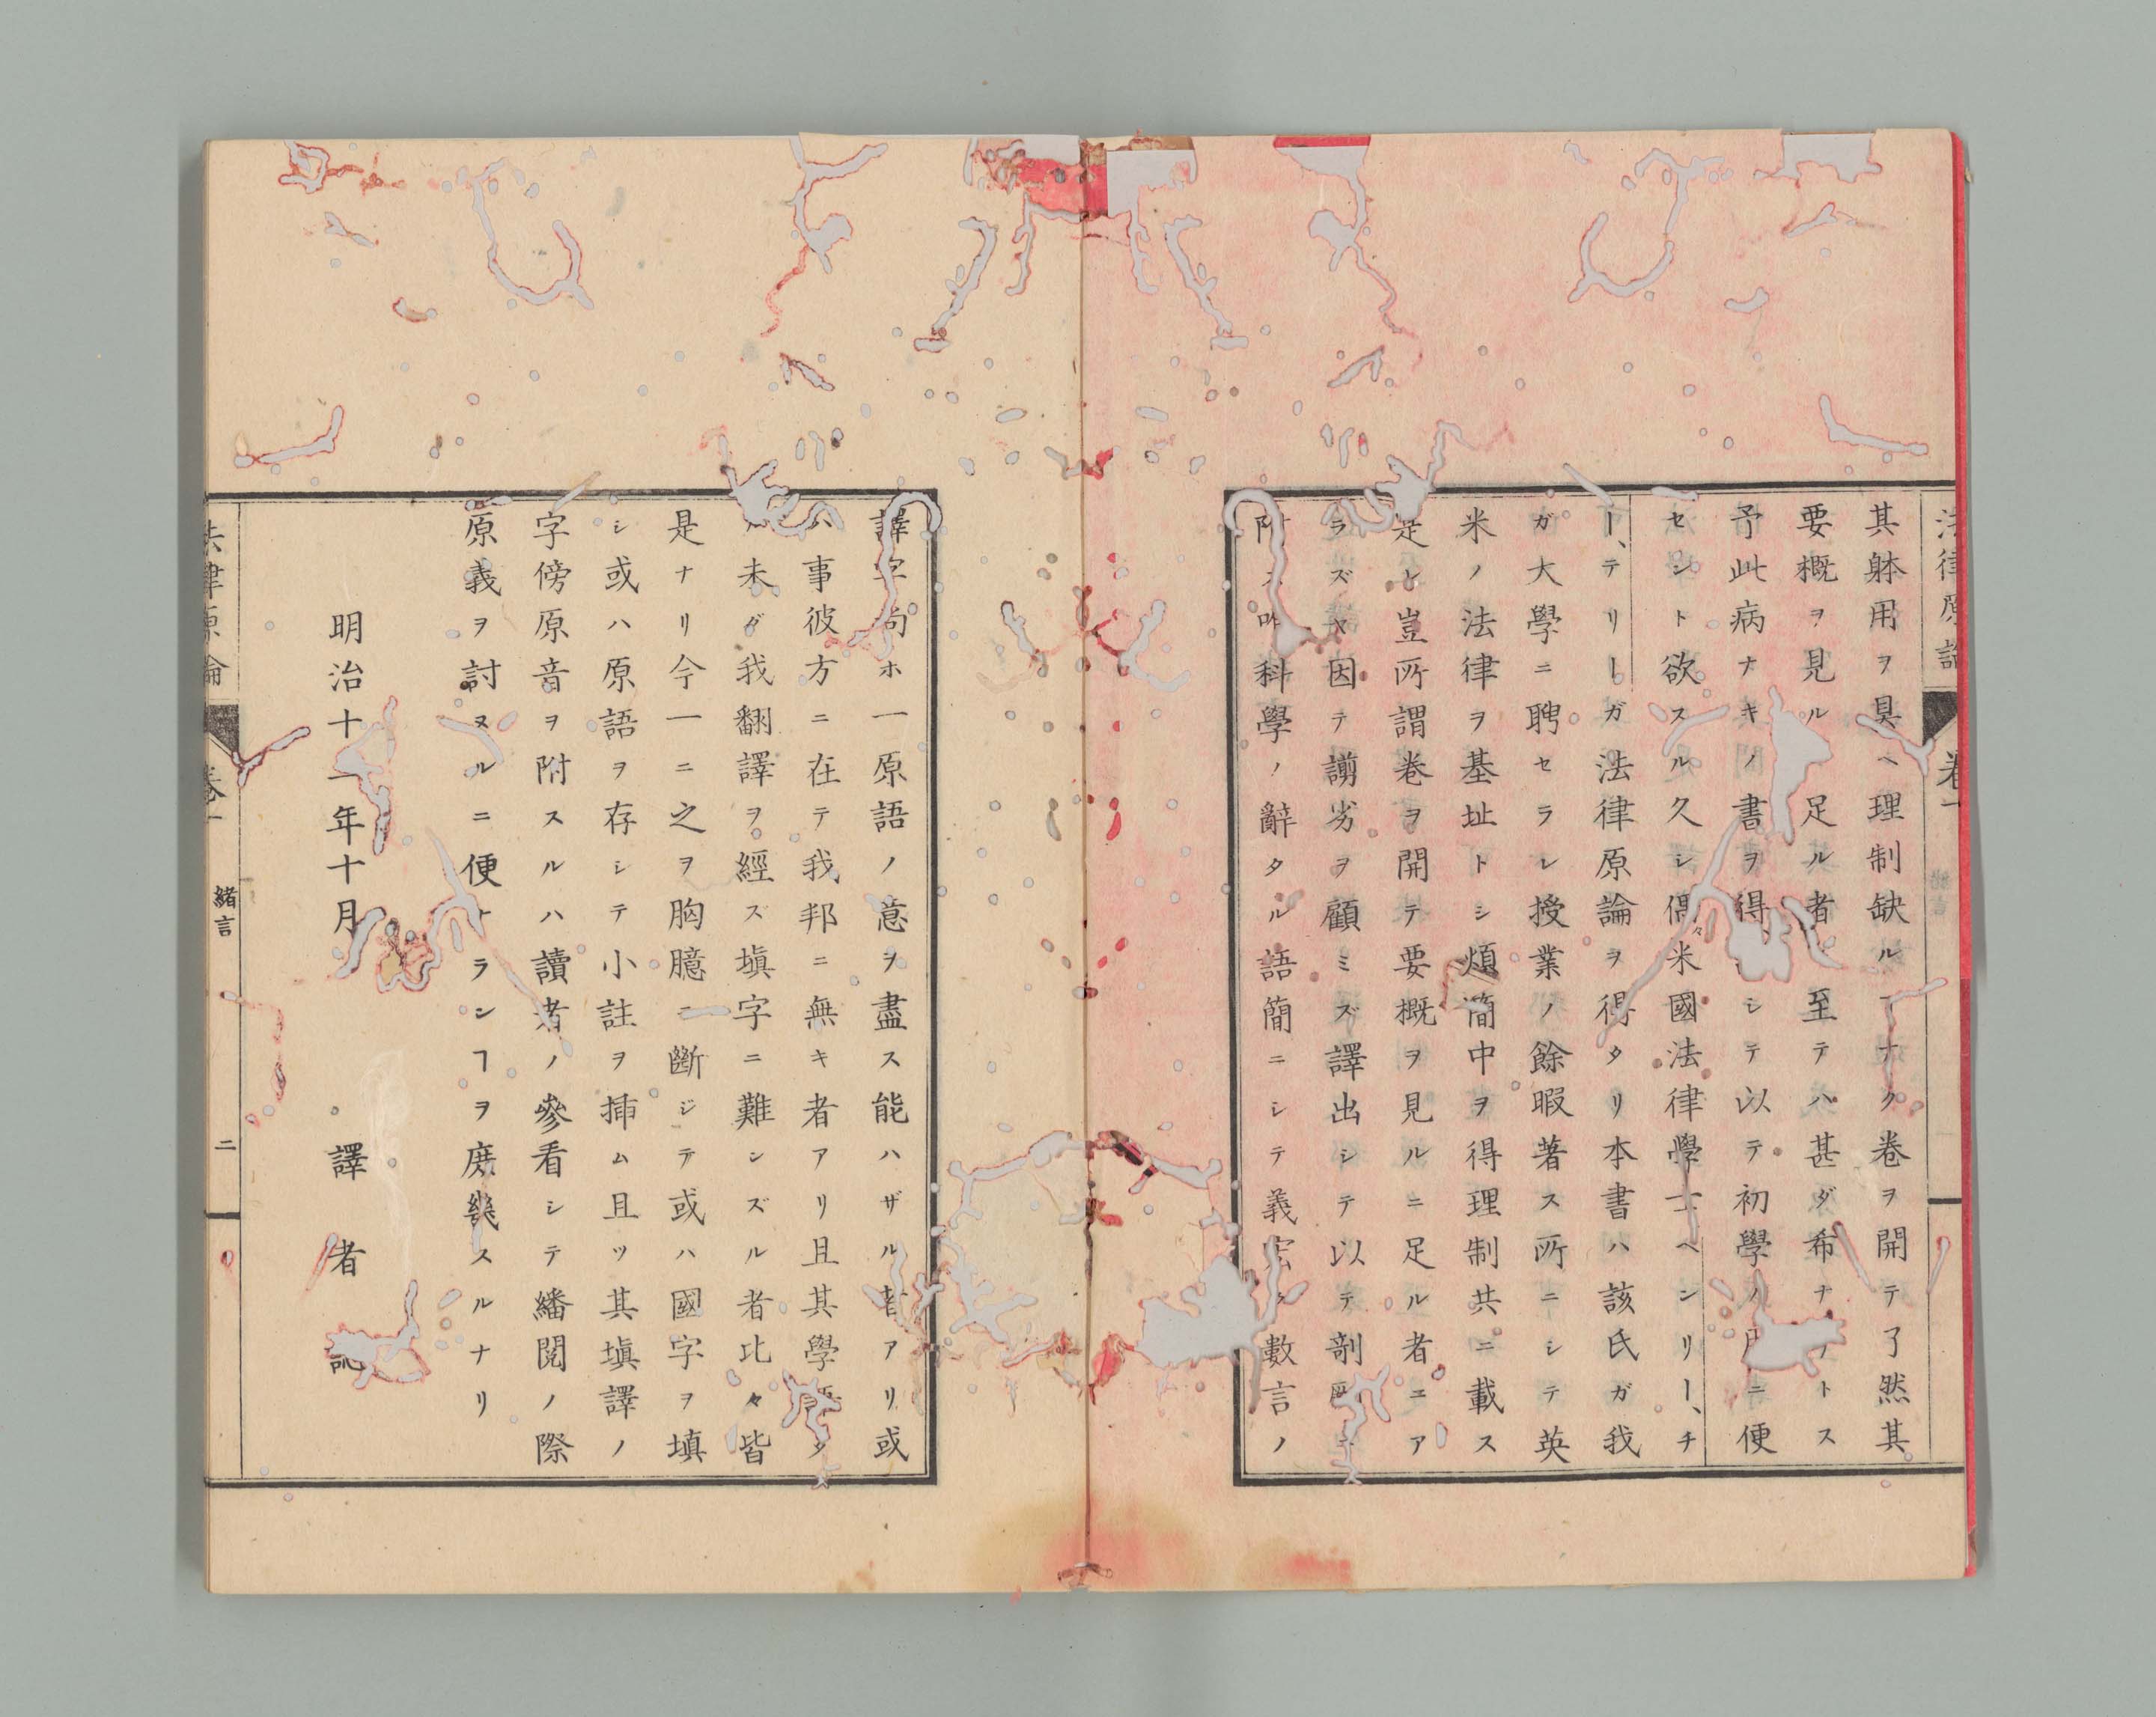 其躰用ヲ具ヘ理制缺ルヿナク卷ヲ開テ了然其
要概ヲ見ル足ル者至テハ甚ダ希ナトス
予此病ナキノ書ヲ得シテ以テ初學ノニ便
セント欲スル久シ偶々米國法律學士ヘンリー、チ
ー、テリーガ法律原論ヲ得タリ本書ハ該氏ガ我
ガ大學ニ聘セラレ授業ノ餘暇著ス所ニシテ英
米ノ法律ヲ基址トシ煩簡中ヲ得理制共ニ載ス
是レ豈所謂卷ヲ開テ要概ヲ見ルニ足ル者ニア
ラズヤ因テ謭劣ヲ顧ミズ譯出シテ以テ剞
附ス 科學ノ辭タル語簡ニシテ義宏ク數言ノ
法律原論 卷一
譯字句ホ一原語ノ意ヲ盡ス能ハザル者アリ或
ハ事彼方ニ在テ我邦ニ無キ者アリ且其學
未ダ我翻譯ヲ經ズ塡字ニ難ンズル者比々皆
是ナリ今一ニ之ヲ胸臆ニ斷ジテ或ハ國字ヲ塡
シ或ハ原語ヲ存シテ小註ヲ挿ム且ツ其塡譯ノ
字傍原音ヲ附スルハ讀者ノ參看シテ繙閱ノ際
原義ヲ討ヌルニ便ナランヿヲ庶幾スルナリ
明治十一年十月
譯者記
法律原論 卷一 緒言 二